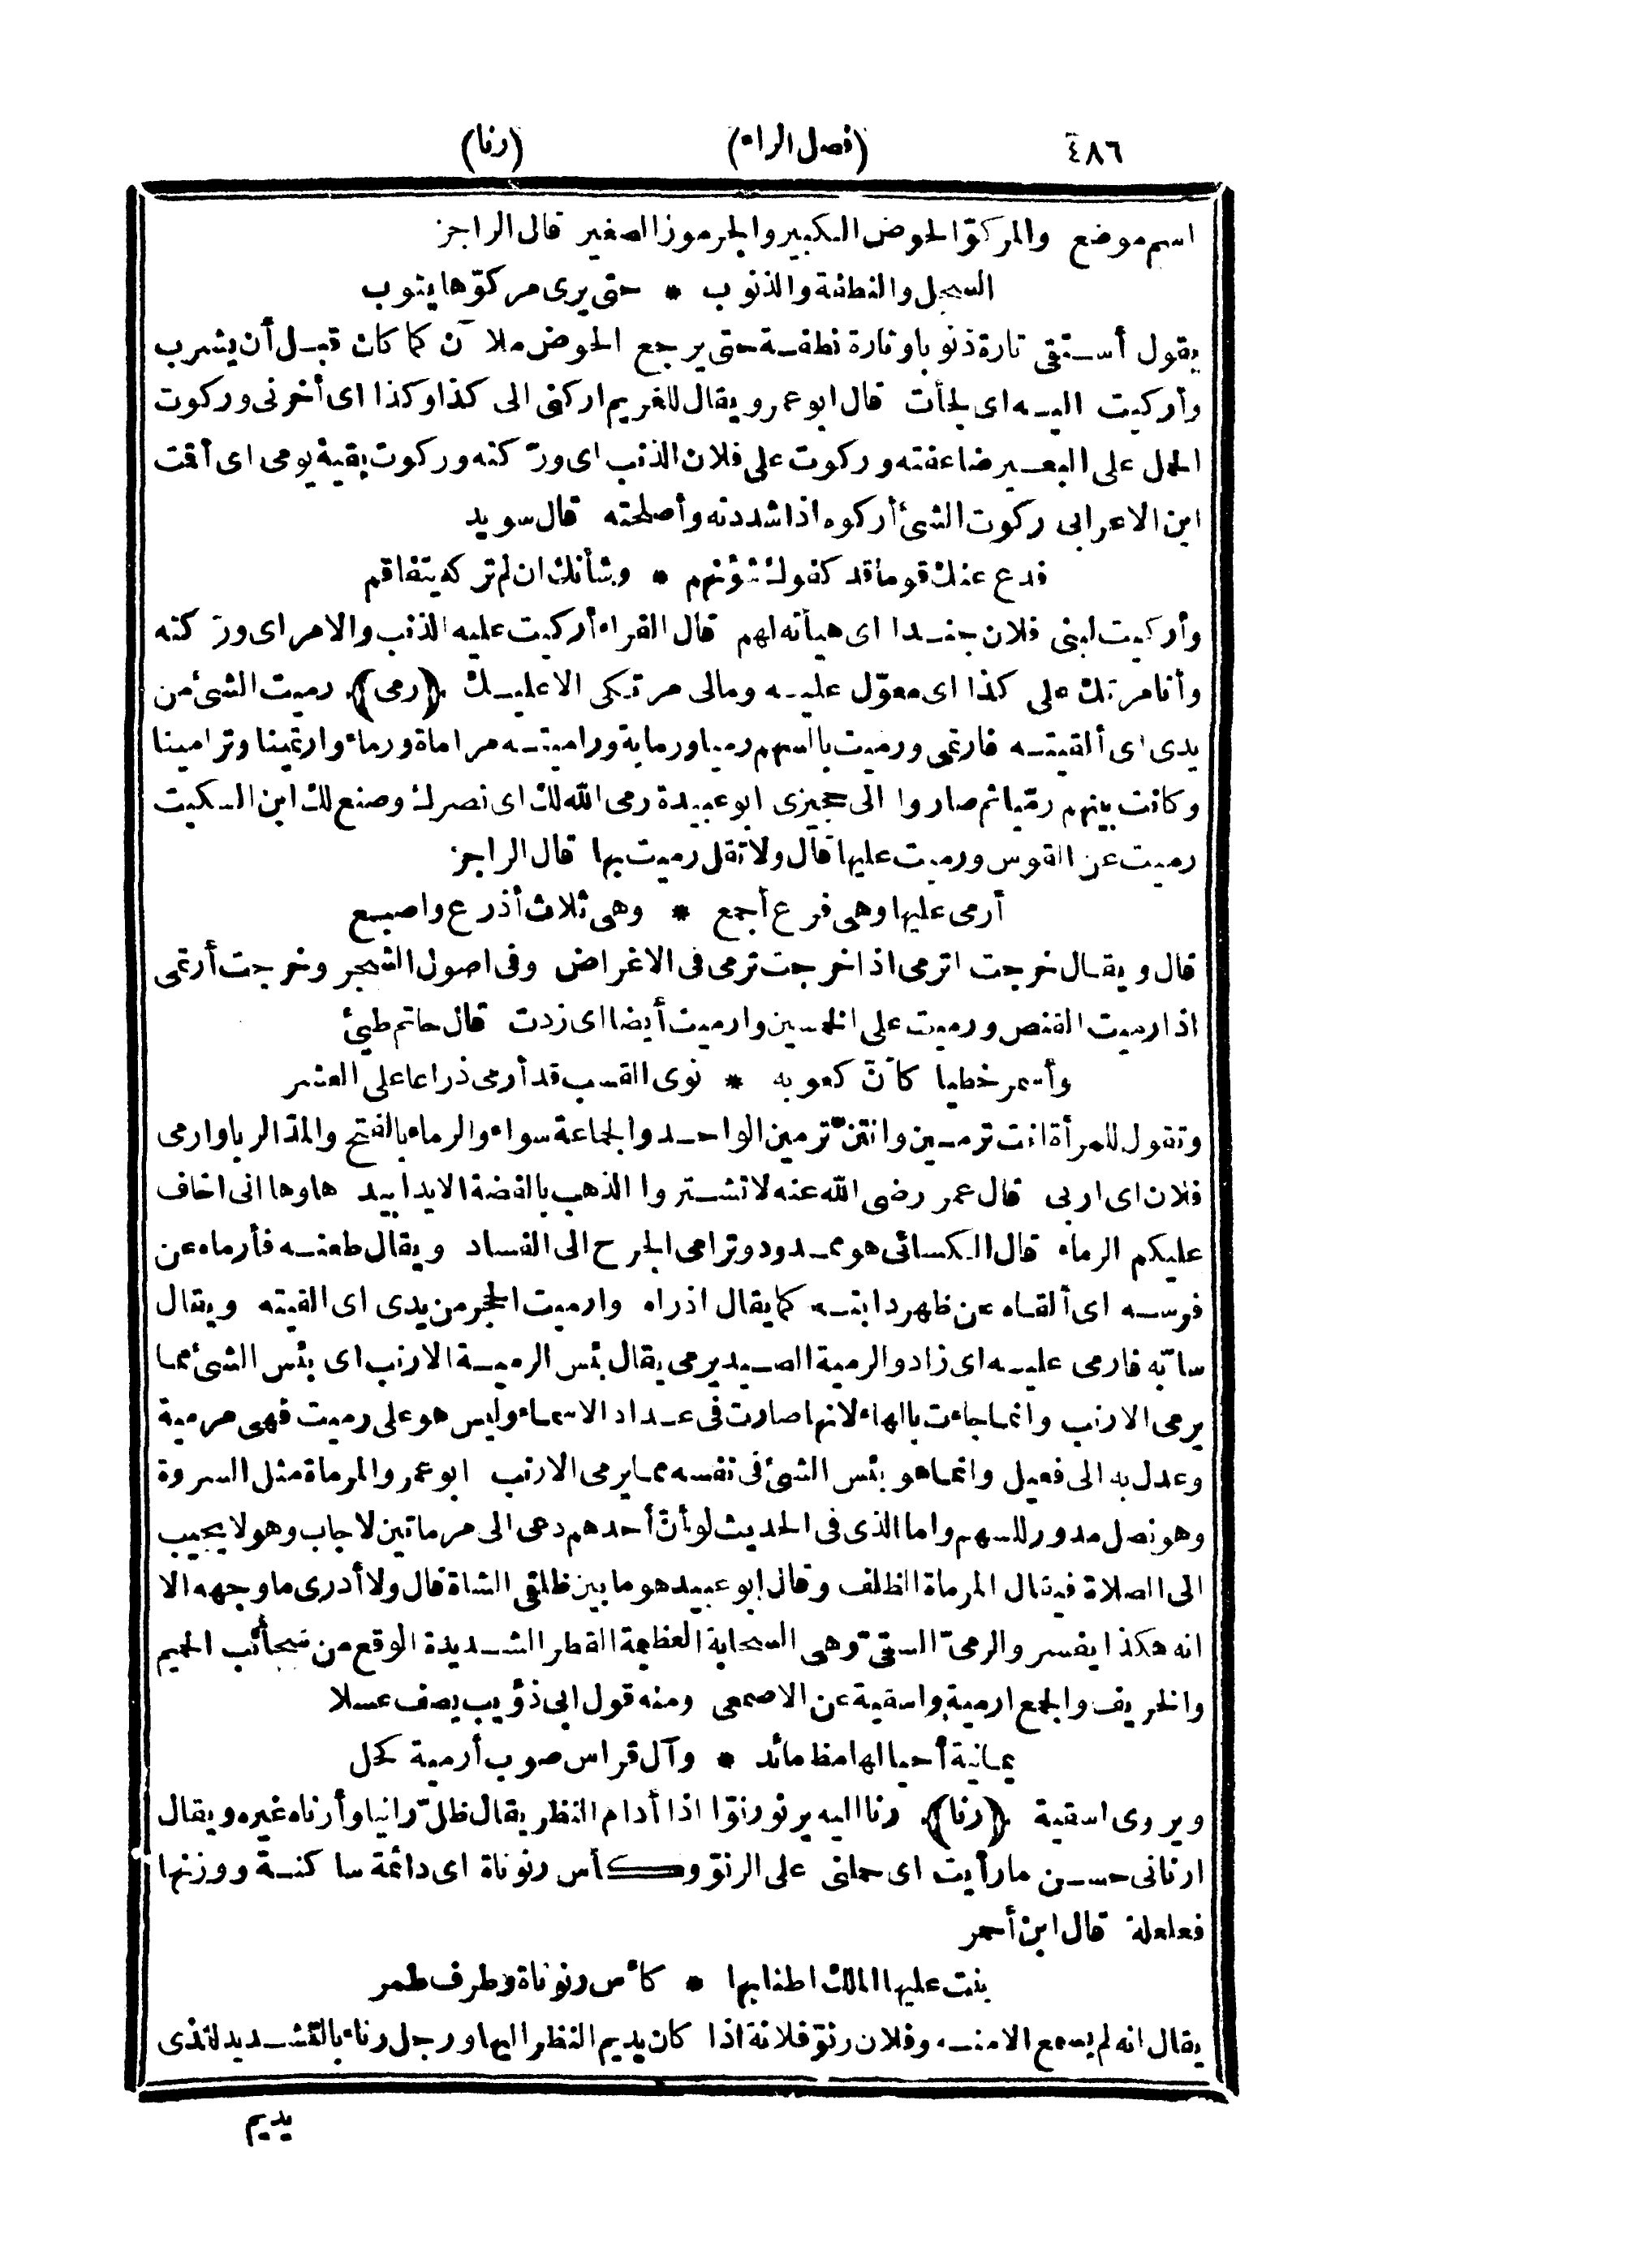 ٤٨٦ (فصل الراء) (رنا)
اسم موضع والمركوّ الحوض الكبير والجرموز الصغير قال الراجز
السجل والنطفة والذنوب * حتى يرى مركوّها يثوب
يقول أستقى تارة ذنوبا وتارة نطفة حتى يرجع الحوض ملآن كما كان قبل أن يشرب
وأركيت اليه اى لجأت قال ابو عمرو يقال للغريم اركنى الى كذا وكذا اى أخرنى وركوت
الحمل على البعير ضاعفته وركوت على فلان الذنب اى ورّكته وركوت بقية يومى اى أقت
ابن الاعرابى ركوت الشئ أركوه اذا شددته وأصلحته قال سويد
فدع عنك قوما قد كفوك شؤنهم * وشأنك ان لم تركه يتفاقم
وأركيت لبنى فلان جندا اى هيأته لهم قال الفراء أركيت عليه الذنب والامر اى ورّكته
وأنا مرتك على كذا اى معوّل عليه ومالى مرتكى الا عليك ﴿رمى﴾ رميت الشئ من
يدى اى ألقيته فارتمى ورميت بالسهم رميا ورماية وراميته مراماة ورماء وارتمينا وترامينا
وكانت بينهم رمّيا ثم صاروا الى حجيزى ابو عبيدة رمى الله لك اى نصرك وصنع لك ابن السكيت
رميت عن القوس ورميت عليها قال ولا تقل رميت بها قال الراجز
أرمى عليها وهى فرع أجمع * وهى ثلاث أذرع واصبع
قال ويقال خرجت اترمى اذا خرجت ترمى فى الاغراض وفى اصول الشجر وخرجت أرتمى
اذا رميت القنص ورميت على الخمسين وارميت أيضا اى زدت قال حاتم طيئ
وأسمر خطيا كأنّ كعوبه * نوى القسب قد أرمى ذراعا على العشر
وتقول للمرأة انت ترمين وانتنّ ترمين الواحد والجماعة سواء والرماء بالفتح والمدّ الربا وارمى
فلان اى اربى قال عمر رضى الله عنه لا تشتروا الذهب بالفضة الا يدا بيد هاوها انى اخاف
عليكم الرماء قال الكسائى هو ممدود وترامى الجرح الى الفساد ويقال طعنه فأرماه عن
فرسه اى ألقاه عن ظهر دابته كما يقال اذراه وارميت الحجر من يدى اى القيته ويقال
سابّه فارمى عليه اى زاد والرمية الصيد يرمى يقال بئس الرمية الارنب اى بئس الشئ مما
يرمى الارنب وانما جاءت بالهاء لانها صارت فى عداد الاسماء وليس هو على رميت فهى مرمية
وعدل به الى فعيل وانما هو بئس الشئ فى نفسه مما يرمى الارنب ابو عمرو المرماة مثل السروة
وهو نصل مدور للسهم واما الذى فى الحديث لو أنّ أحدهم دعى الى مرماتين لاجاب وهو لا يجيب
الى الصلاة فيقال المرماة الظلف وقال ابو عبيد هو ما بين ظلفى الشاة قال ولا أدرى ما وجهه الا
انه هكذا يفسر والرمىّ السقىّ وهى السحابة العظيمة القطر الشديدة الوقع من سحائب الحميم
والخريف والجمع ارمية واسقية عن الاصمعى ومنه قول ابى ذؤيب يصف عسلا
يمانية أحيا لها مظ مائد * وآل قراس صوب أرمية كحل
ويروى اسقية ﴿رنا﴾ رنا اليه يرنو رنوّا اذا أدام النظر يقال ظلّ رانيا وأرناه غيره ويقال
ارنانى حسن ما رأيت اى حملنى على الرنوّ وكأس رنوناة اى دائمة ساكنة ووزنها
فعلعلة قال ابن أحمر
بنت عليها الملك اطنابها * كأس رنوناة وطرف طمر
يقال انه لم يسمع الا منه وفلان رنوّ فلانة اذا كان يديم النظر اليها ورجل رناء بالتشديد للذى
يديم